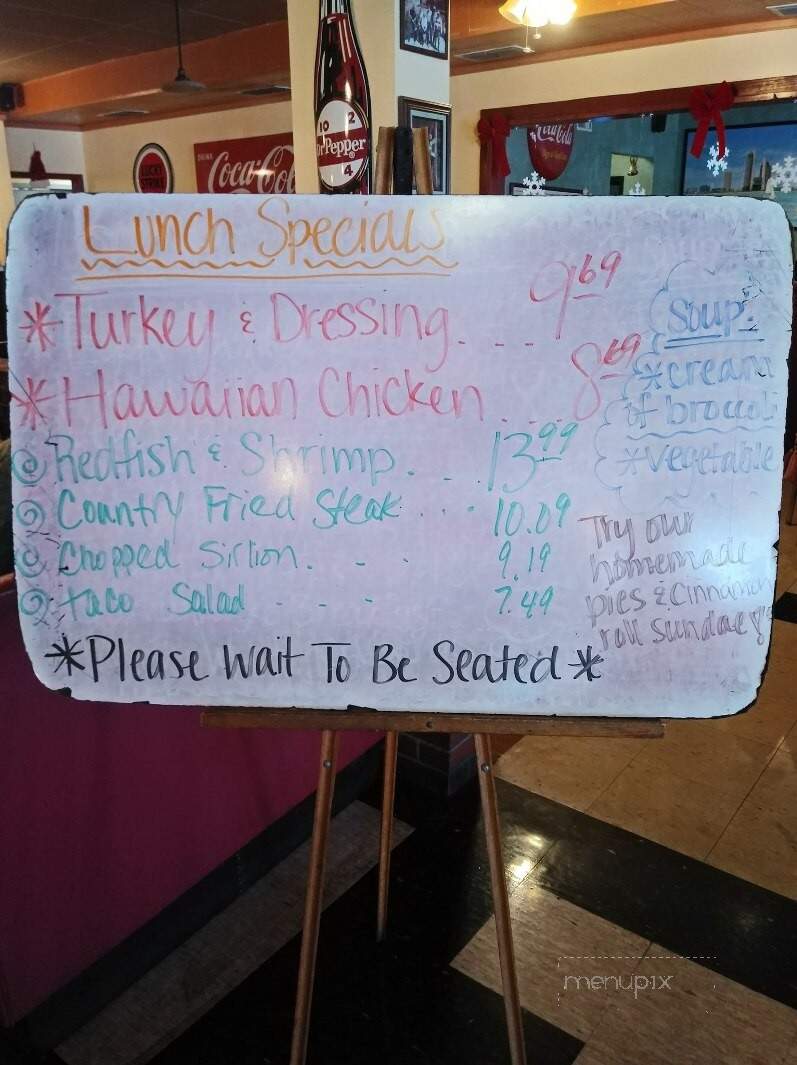 10 2
Dr Pepper
4
DRINK
Coca-Cola
LUCKY
STRIKE
Coca-Cola
Lunch Specials
*Turkey & Dressing. - - - 9.69
*Hawaiian Chicken . . . 8.69
Redfish & Shrimp. . - 13.99
Country Fried Steak . . . 10.09
Chopped Sirlion. - - 9.19
Taco Salad - - - 7.49
*Please Wait To Be Seated*
Soup:
*cream
of broccoli
*vegetable
Try our
homemade
pies & cinnamon
roll sundae's
menupix